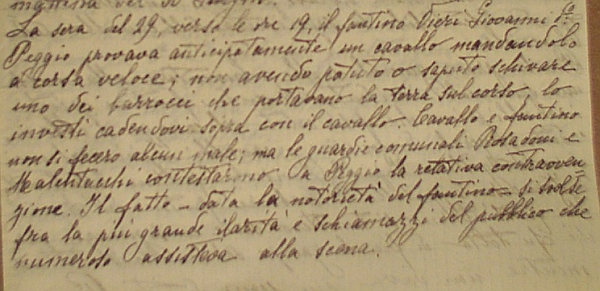 mattina del 30 Giugno.
La sera del 29, verso le ore 19, il fantino Vieri Giovanni d.º
Peggio provava anticipatamente un cavallo mandandolo
a corsa veloce; non avendo potuto o saputo schivare
uno dei barrocci che portavano la terra sul corso, lo
investì cadendovi sopra con il cavallo. Cavallo e fantino
non si fecero alcun male; ma le guardie comunali Rosadoni e
Malentacchi contestarono a Peggio la relativa contravven-
zione. Il fatto - data la notorietà del fantino - si svolse
fra la più grande ilarità e schiamazzi del pubblico che
numeroso assisteva alla scena.